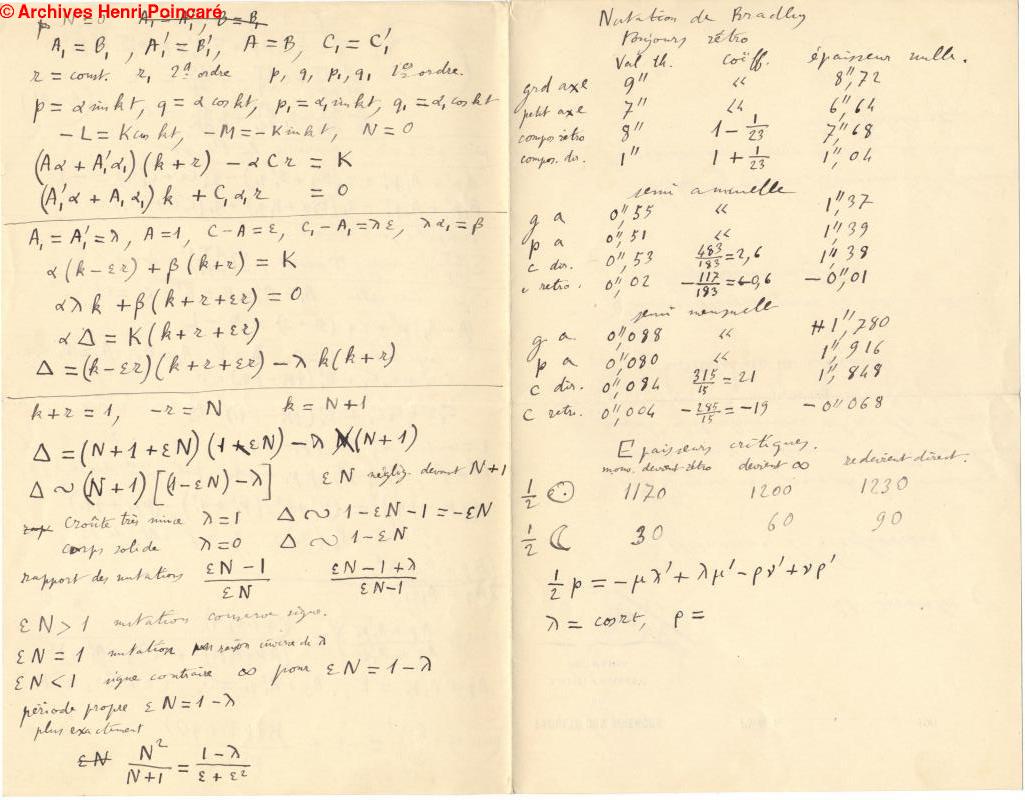 © Archives Henri Poincaré
p N=0 A₁ = A₁', B = B₁
A₁ = B₁, A₁' = B₁', A = B, C₁ = C₁'
r = const. r₁ 2ᵈ ordre p, q, p₁, q₁ 1ᵉʳ ordre.
p = α sin kt, q = α cos kt, p₁ = α₁ sin kt, q₁ = α₁ cos kt
– L = K cos kt, – M = – K sin kt, N = 0
(Aα + A₁'α₁)(k+r) – αCr = K
(A₁'α + A₁α₁)k + C₁α₁r = 0
A₁ = A₁' = λ, A = 1, C – A = ε, C₁ – A₁ = λε, λα₁ = β
α(k – εr) + β(k+r) = K
αλk + β(k+r+εr) = 0
αΔ = K(k+r+εr)
Δ = (k–εr)(k+r+εr) – λk(k+r)
k+r = 1, –r = N k = N+1
Δ = (N+1+εN)(1–εN) – λ(N+1)
Δ ∼ (N+1)[(1–εN) – λ] εN néglig. devant N+1
croûte très mince λ=1 Δ ∼ 1–εN–1 = –εN
corps solide λ=0 Δ ∼ 1–εN
rapport des nutations (εN–1)/(εN) (εN–1+λ)/(εN–1)
εN > 1 nutation conserve signe.
εN = 1 nutation raison inverse de λ
εN < 1 signe contraire ∞ pour εN = 1–λ
période propre εN = 1–λ
plus exactement
εN N²/(N+1) = (1–λ)/(ε+ε²)
Nutation de Bradley
Toujours rétro
Val th. coëff. épaisseur nulle.
grd axe 9" " 8",72
petit axe 7" " 6",64
compos rétro 8" 1 – 1/23 7",68
compos. dir. 1" 1 + 1/23 1",04
semi annuelle
g a 0",55 " 1",37
p a 0",51 " 1",39
c dir. 0",53 483/183 = 2,6 1",38
c retro. 0",02 –117/183 = –0,6 – 0",01
semi mensuelle
g a 0",088 " 1",780
p a 0",080 " 1",916
c dir. 0",084 315/15 = 21 1",848
c retro. 0",004 –285/15 = –19 –0"068
Epaisseurs critiques.
mouv. devient rétro devient ∞ redevient direct.
½ ☉ 1170 1200 1230
½ ☾ 30 60 90
½ p = – μλ' + λμ' – ρν' + νρ'
λ = cos rt, ρ =